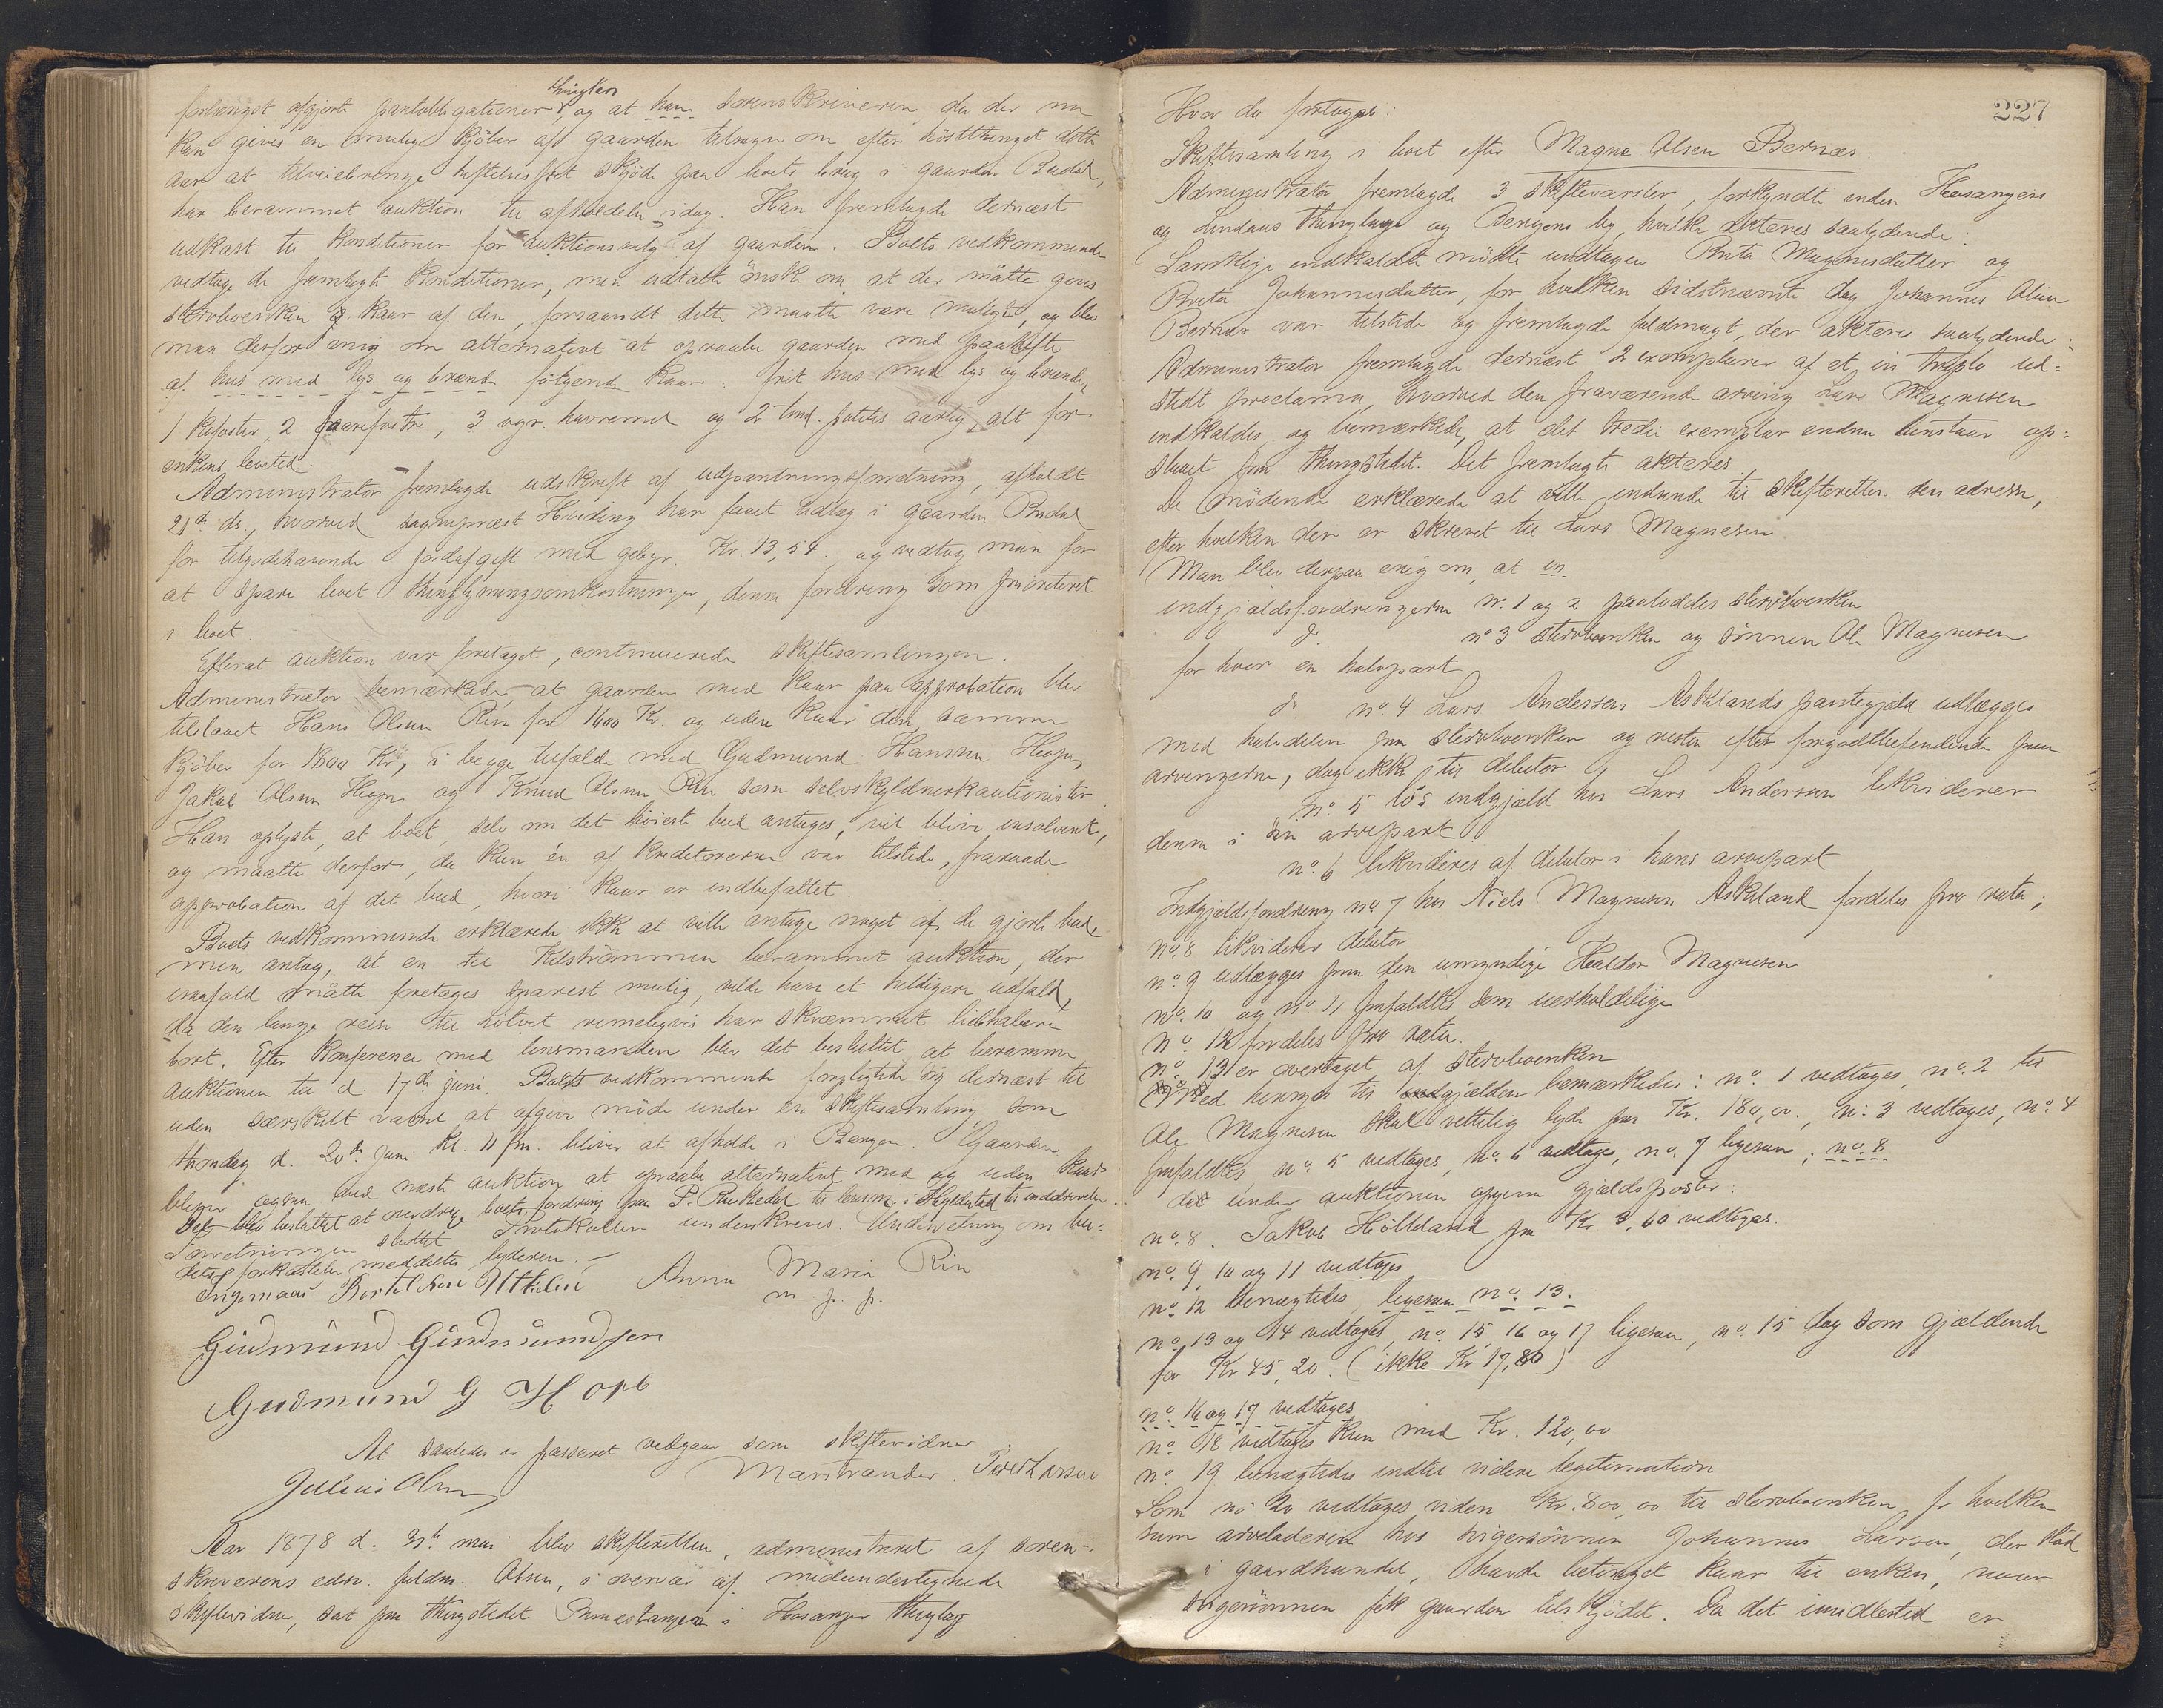 forlængst afgjorte pantobligationer, og at han sorenskriveren, da der nu
kun gives en mulig kjöber af gaarden tilsagn om efter hösttthinget dette
aar at tilveiebringe heftelsesfrit skjöde paa boets brug i gaarden
har berammet auktion til afholdelse idag. Han fremlagde dernæst
udkast til konditioner for auktionssalg af gaarden. Boets vedkommende
vedtog de fremlagte konditioner, men udtalte önske om, at der måtte gives
stervboenken kaar af den, forsaavidt dette maatte være muligt, og blev
man derfor enig om alternativt at opraabe gaarden med paahefte
af hus med lys og brænde følgende kaar: frit hus med lys og brænde,
1 kofoster, 2 faarefostre, 3 vgr. havremel og 2 tnd. potetes aarlig, alt for
enkens levetid.
Administrator fremlagde udskrift af udpantningsforretning, afholdt
21de ds., hvorved sogneprest Hvoding har faaet udlæg i gaarden
for tilgodehavende jordafgift med gebyr Kr. 13,54. og vedtog man for
at spare boet thinglysningsomkostninger, denne fordring som prioriteret
i boet.
Efterat auktion var foretaget, continuerede skiftesamlingen.
Administrator bemærkede, at gaarden med kaar paa approbation blev
tilslaaet Hans Olsen Rin for 1400 Kr. og uden kaar den samme
kjöber for 1800 Kr, i begge tilfælde med Gudmund Hansen
Jakob Olsen og Knud Olsen Rin som selvskyldnerkautionister
Han oplyste, at boet, selv om det höieste bud antages, vil blive insolvent,
og maatte derfor, da kun én af kreditorerne var tilstede, fraraade
approbation af det bud, hvori kaar er indbefattet.
Boets vedkommende erklærede ikke at ville antage noget af de gjorte bud,
men antog, at en til Kilströmmen berammet auktion, der
isaafald måtte foretages snarest mulig, vilde have et heldigere udfald,
da den lange reise til rimeligvis har skræmmet liebhabere
bort. Efter konference med lensmanden blev det besluttet at beramme
auktionen til d. 17de juni. Boets vedkommende forpligtede sig dernæst til
uden særskilt varsel at afgive möde under en skiftesamling, som
d. 20de juni kl. 11 fm. bliver at afholde i Bergen. Gaarden
bliver ogsaa ved næste auktion at opraabe alternativt med og uden kaar
Det blev besluttet at boets fordring paa P. til lensm. i til inddrivelse.
Forretningen sluttet. Protokollen underskreves. Underretning om bu-
dets forkastelse meddeltes byderen. —
Anna Maria Rin
m. p. p.
Gudmund Gudmundsen
Gudmund G Hope
At saaledes er passeret vedgaar som skiftevidner
Marstrander. Peder Larsen
Aar 1878 d. mai blev skifteretten, administreret af soren-
skriverens edsv. fuldm. Olsen, i overvær af medundertegnede
skiftevidner, sat paa thingstedet i Hosanger thinglag
227
Hvor da foretoges:
Skiftesamling i boet efter Magne Olsen Bernæs.
Administrator fremlagde 3 skiftevarsler, forkyndte inden Hosangers
og Lindaas thinglage og Bergens by, hvilke akteres saalydende:
Samtlige indkaldte mödte undtagen Magnesdatter og
Brita Johannesdatter, for hvilken sidstnævnte dog Johannes Olsen
Bernæs var tilstede og fremlagde fuldmagt, der akteres saalydende:
Administrator fremlagde dernæst 2 exemplarer af et in triplo ud-
stedt proclama, hvorved den fraværende arving Lars Magnesen
indkaldes, og bemærkede, at det tredie exemplar endnu henstaar op-
slaaet paa thingstedet. Det fremlagte akteres.
De mödende erklærede at ville indsende til skifteretten den adresse,
efter hvilken der er skrevet til Lars Magnesen.
Man blev derpaa enig om, at en
indgjældsfordringerne nr. 1 og 2 paaloddes stervboenken
do no 3 stervboenken og sönnen Ole Magnesen
for hver en halvpart
do no. 4 Lars Andersen Askelands pantegjæld udlægges
med halvdelen paa stervboenken og resten efter forgodtbefindende paa
arvingerne, dog ikke til debitor
no. 5 lös indgjæld hos Lars Andersen likviderer
denne i sin arvepart
no. 6 likvideres af debitor i hans arvepart
Indgjældsfordring no. 7 hos Niels Magnesen Askeland fordeles pro rata;
no. 8 likviderer debitor
no. 9 udlægges paa den umyndige Haldor Magnesen
no. 10 og no. 11 frafaldtes som uerholdelige
no. 12 fordeles pro rata.
no. 13 er overtaget af stervboenken
Med hensyn til gjælden bemærkedes: no. 1 vedtages, no. 2 til
Ole Magnesen skal rettelig lyde paa Kr. 180,00., no. 3 vedtages, no. 4
frafaldtes, no. 5 vedtages, no. 6 vedtages, no. 7 ligesaa; no. 8
de under auktionen opgivne gjældsposter:
no. 8. Jakob Hölleland paa Kr 3,60 vedtages.
no. 9, 10 og 11 vedtages
no. 12 benægtedes, ligesaa no. 13.
no. 13 og 14 vedtages, no. 15, 16 og 17 ligesaa, no. 15 dog som gjældende
for Kr 45,20. (ikke Kr 17,80)
no. 16 og 17 vedtages
no. 18 vedtages kun med Kr. 120,00
no. 19 benægtedes indtil videre legitimation
Som no 20 vedtages viden Kr. 800,00 til stervboenken, for hvilken
sum arveladeren hos svigersönnen Johannes Larsen, der stod
i gaardhandel, havde betinget kaar til enken, naar
svigersönnen fik gaarden tilskjödet. Da det imidlertid er